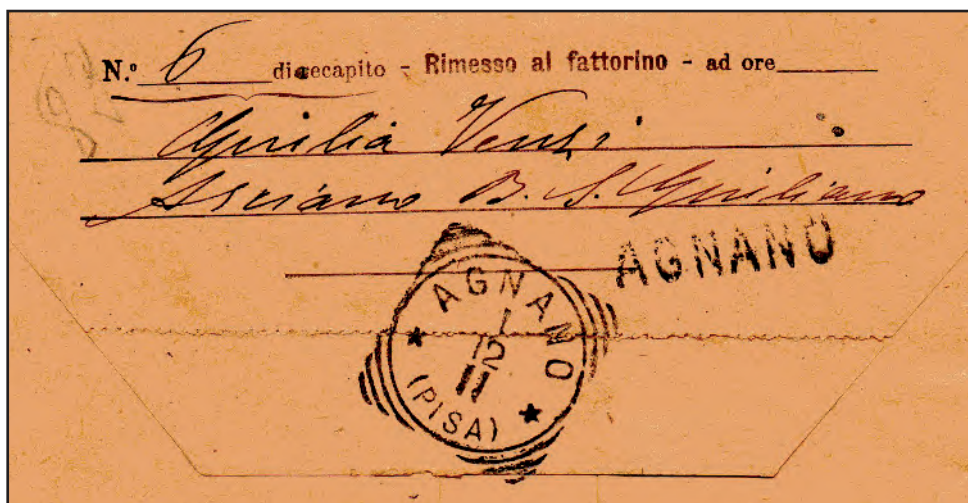 N.º 6 di recapito - Rimesso al fattorino - ad ore
Giulia
Asciano B. S. Giuliano
AGNANO
AGNANO
1
12
11
(PISA)